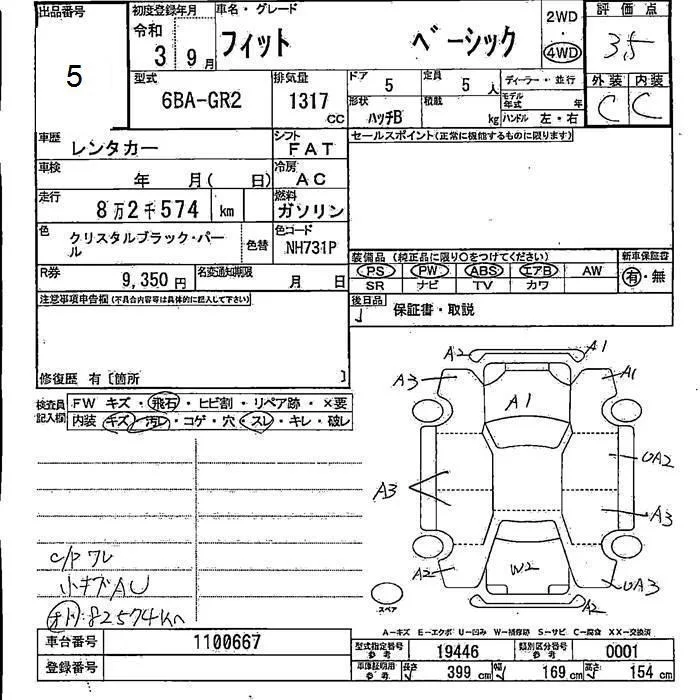 出品番号 5
初度登録年月 令和 3 9月
車名・グレード フィット ベーシック
2WD・4WD
評価点 3.5
外装 内装 C C
型式 6BA-GR2
排気量 1317 CC
ドア 5
定員 5 人
ディーラー・並行
形状 ハッチB
積載 kg
モデル年式 年
ハンドル 左・右
車歴 レンタカー
シフト FAT
セールスポイント(正常に機能するものに限ります)
車検 年 月( 日)
冷房 AC
走行 8万2千574 km
燃料 ガソリン
色 クリスタルブラック・パール
色替
色コード NH731P
R券 9,350円
名変通知期限 月 日
装備品 (純正品に限り○をつけてください)
新車保証書
PS PW ABS エアB AW
有・無
SR ナビ TV カワ
後日品 保証書・取説
注意事項申告欄(不具合内容等は具体的に記入して下さい)
修復歴 有〔箇所 〕
検査員記入欄
FW キズ・飛石・ヒビ割・リペア跡・×要
内装 キズ・汚レ・コゲ・穴・スレ・キレ・破レ
A2 A1
A3 A1
A1
UA2
A3
A3
A2 W2 UA3
A2
スペア
C/P ワレ
小キズAU
オドメ:82574Km
A-キズ E-エクボ U-凹み W-補修跡 S-サビ C-腐食 XX-交換済
車台番号 1100667
型式指定番号参考 19446
類別区分番号参考 0001
登録番号
車庫証明用参考 長さ 399 cm 幅 169 cm 高さ 154 cm